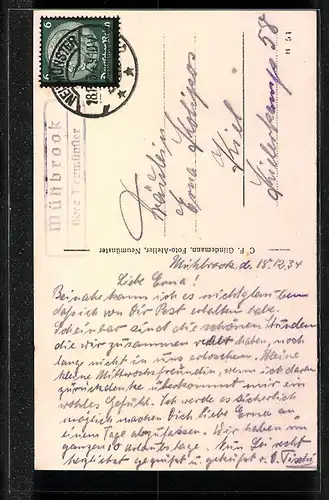 6 Deutsches Reich 6
NEUMÜNSTER
18.12.34
Mühbrook
über Neumünster
Fräulein
Erna
Kiel
58
C. F. Gündemann, Foto-Atelier, Neumünster
H 51
Mühbrook, d. 18.12.34
Liebe Erna!
Beinahe kann ich es nicht glauben
daß ich von Dir Post erhalten habe.
Scheinbar sind die schönen Stunden
die wir zusammen verlebt haben, noch
lange nicht in uns erloschen. Meine
kleine Mittwochsfreundin, wenn ich daran
zurückdenke überkommt mir ein
wohles Gefühl. Ich werde es sicherlich
möglich machen Dich liebe Erna an
einem Tage abzufassen. Wir haben im
ganzen 10 Urlaubstage. Nun sei recht
herzlichst gegrüßt und geküßt v. D.